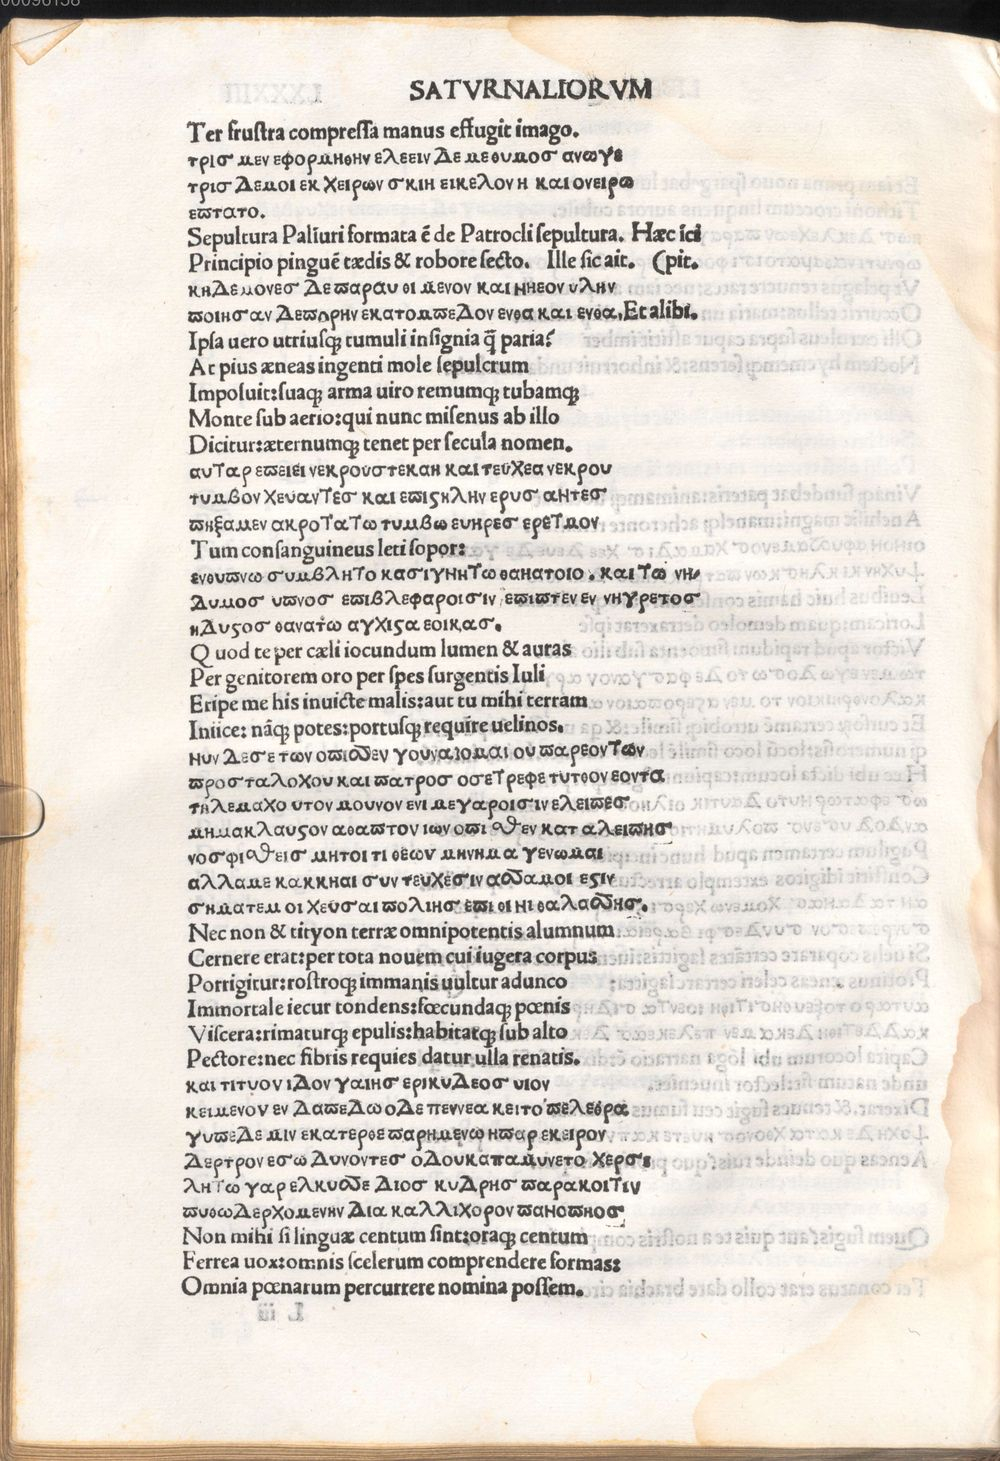 SATVRNALIORVM
Ter frustra compressa manus effugit imago.
τρισ μεν εφορμηθην ελεειν Δε με θυμοσ ανωγε
τρισ Δεμοι εκ χειρων σκιη εικελον η και ονειρω
επτατο.
Sepultura Paliuri formata ē de Patrocli sepultura. Hæc ici
Principio pinguē tædis & robore secto. Ille sic ait. (pit.
κηΔεμονεσ Δε παραυ θι μενον και νηεον υλην
ποιησαν Δεπυρην εκατομπεΔον ενθα και ενθα. Et alibi.
Ipsa uero utriusqꝫ tumuli insignia q̄ paria?
At pius æneas ingenti mole sepulcrum
Imposuit:suaqꝫ arma uiro remumqꝫ tubamqꝫ
Monte sub aerio:qui nunc misenus ab illo
Dicitur:æternumqꝫ tenet per secula nomen.
αυταρ επειει νεκρουστεκαη και τευχεα νεκρου
τυμβον χευαντεσ και επιςηλην ερυσ αητεσ
πηξαμεν ακροτατω τυμβω ευηρεσ ερετμον
Tum consanguineus leti sopor:
ενθυπνω συμβλητο κασιγνητω θανατοιο. και τω νη/
Δυμοσ υπνοσ επιβλεφαροισιν επιπτεν εν νηγρετοσ
ηΔυςοσ θανατω αγχιςα εοικασ.
Quod te per cæli iocundum lumen & auras
Per genitorem oro per spes surgentis Iuli
Eripe me his inuicte malis:aut tu mihi terram
Iniice: nāqꝫ potes:portusqꝫ require uelinos.
νυν Δεσε των οπιθεν γουναζομαι ου παρεοντων
προσ ταλοχου και πατροσ οσετρεφε τυτθον εοντα
τηλεμαχο υτον μουνον ενι μεγαροισιν ελειπεσ
μημακλαυςον αθαπτον ιων οπι θεν κατ αλειπησ
νοσφιθεισ μητοι τι θεων μηνημα γενωμαι
αλλαμε κακκηαι συν τευχεσιν ασσαμοι εςιν
σηματεμ οι χευσαι πολιησ επι θι νι θαλασσησ.
Nec non & tityon terræ omnipotentis alumnum
Cernere erat:per tota nouem cui iugera corpus
Porrigitur:rostroqꝫ immanis uultur adunco
Immortale iecur tondens:fœcundaqꝫ pœnis
Viscera:rimaturqꝫ epulis:habitatqꝫ sub alto
Pectore:nec fibris requies datur ulla renatis.
και τιτυον ιΔον γαιησ ερικυΔεοσ υιον
κειμενον εν ΔαπεΔω οΔε πεννεα κειτο πελεθρα
γυπεΔε μιν εκατερθε παρημενω ηπαρ εκειρον
Δερτρον εσω Δυνοντεσ οΔουκαπαμυνετο χερσι
λητω γαρ ελκυσσε Διοσ κυΔρησ παρακοιτιν
πυθωΔερχομενην Δια καλλιχορον πανοπηοσ
Non mihi si linguæ centum sint:oraqꝫ centum
Ferrea uox:omnis scelerum comprendere formas:
Omnia pœnarum percurrere nomina possem.